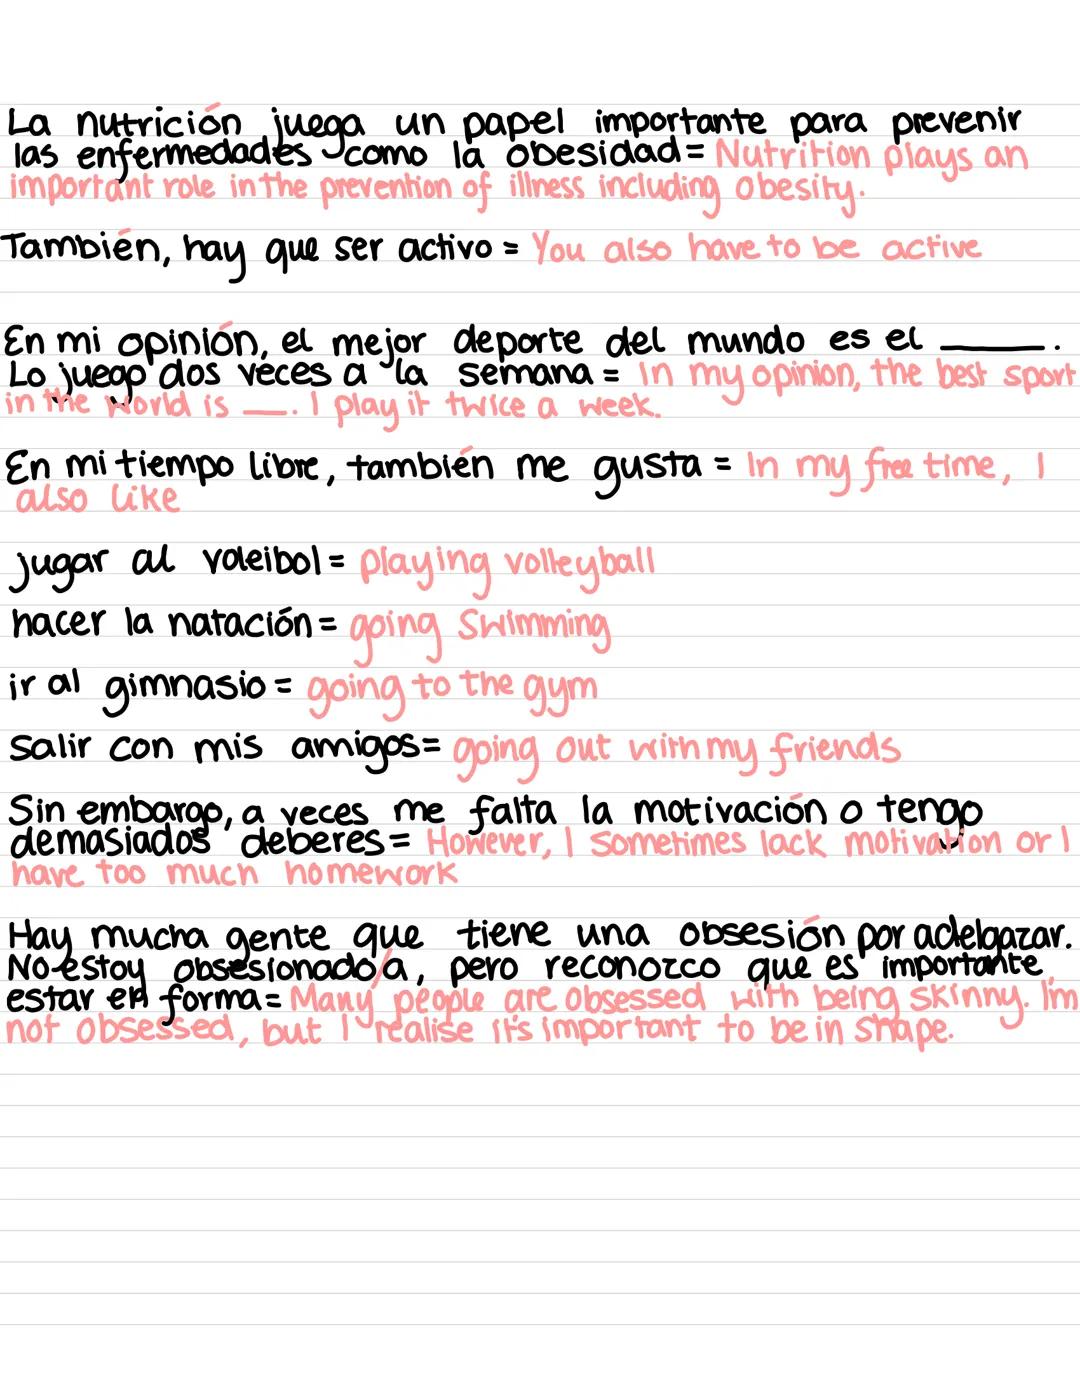 La nutrición juega un papel importante para prevenir
las enfermedades como la obesidad = Nutrition plays an
important role in the prevention of illness including obesity.
También, hay que ser activo = You also have to be active
En mi opinión, el mejor deporte del mundo es el ______.
Lo juego dos veces a la semana = In my opinion, the best sport
in the world is ___. I play it twice a week.
En mi tiempo libre, también me gusta = In my free time, I
also like
jugar al voleibol = playing volleyball
hacer la natación = going swimming
ir al gimnasio = going to the gym
Salir con mis amigos = going out with my friends
Sin embargo, a veces me falta la motivación o tengo
demasiados deberes = However, I sometimes lack motivation or I
have too much homework
Hay mucha gente que tiene una obsesión por adelgazar.
No estoy obsesionado/a, pero reconozco que es importante
estar en forma = Many people are obsessed with being skinny. I'm
not obsessed, but I realise it's important to be in shape.